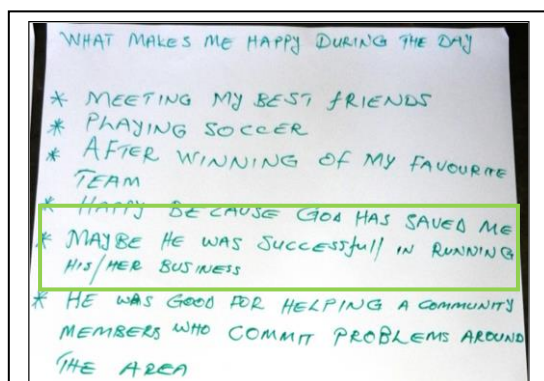 WHAT MAKES ME HAPPY DURING THE DAY
* MEETING MY BEST FRIENDS
* PLAYING SOCCER
* AFTER WINNING OF MY FAVOURITE
TEAM
* HAPPY BECAUSE GOD HAS SAVED ME
* MAYBE HE WAS SUCCESSFULL IN RUNNING
HIS/HER BUSINESS
* HE WAS GOOD FOR HELPING A COMMUNITY
MEMBERS WHO COMMIT PROBLEMS AROUND
THE AREA